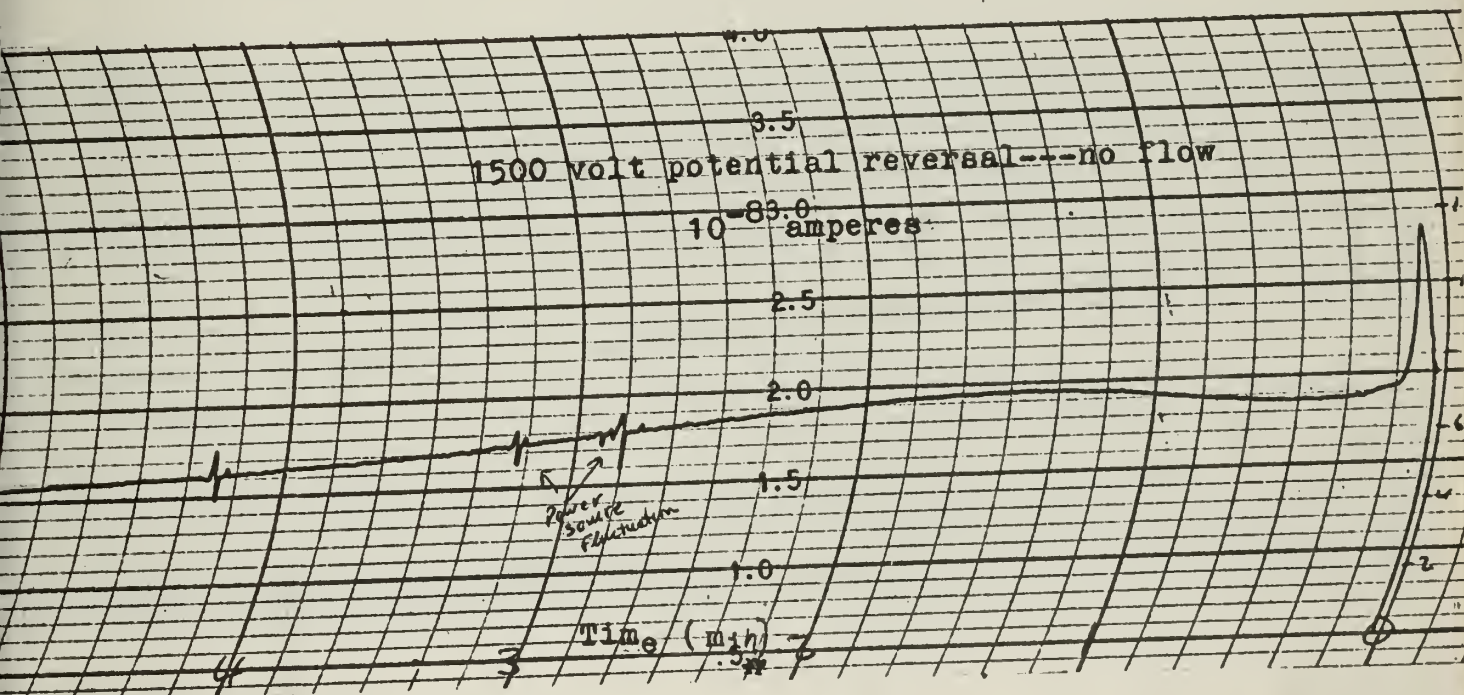 4.0
3.5
1500 volt potential reversal---no flow
3.0
10-8 amperes
2.5
2.0
1.5
Power
source
Fluctuation
1.0
Time (min)
.5
4
3
2
1
0
6
4
2